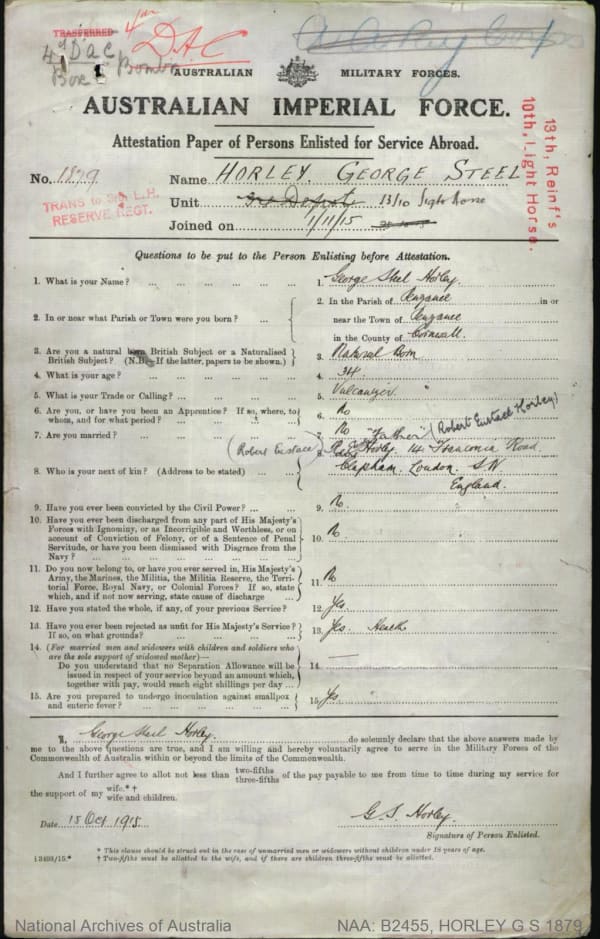 TRANSFERRED
4th
D.A.C
4th D A C
AUSTRALIAN MILITARY FORCES.
AUSTRALIAN IMPERIAL FORCE.
Attestation Paper of Persons Enlisted for Service Abroad.
13th, Reinf's
10th, Light Horse.
No. 1879
Name HORLEY. GEORGE STEEL
Unit 3rd Depot 13/10 Light Horse
TRANS to 3rd L.H.
RESERVE REGT.
Joined on 1/11/15
Questions to be put to the Person Enlisting before Attestation.
1. What is your Name? ... 1. George Steel Horley.
2. In or near what Parish or Town were you born? ... 2. In the Parish of Penzance in or
near the Town of Penzance
in the County of Cornwall.
3. Are you a natural born British Subject or a Naturalised
British Subject? (N.B.—If the latter, papers to be shown.) 3. Natural Born
4. What is your age? ... 4. 34
5. What is your Trade or Calling? ... 5. Vulcanizer.
6. Are you, or have you been an Apprentice? If so, where, to
whom, and for what period? ... 6. No
7. Are you married? ... 7. No "Father" (Robert Eustace Horley)
(Robert Eustace)
8. Who is your next of kin? (Address to be stated) ... 8. Horley. 14 Franconia Road
Clapham. London. S.W
England.
9. Have you ever been convicted by the Civil Power? ... 9. No.
10. Have you ever been discharged from any part of His Majesty's
Forces with Ignominy, or as Incorrigible and Worthless, or on
account of Conviction of Felony, or of a Sentence of Penal
Servitude, or have you been Dismissed with Disgrace from the
Navy? ... 10. No
11. Do you now belong to, or have you ever served in, His Majesty's
Army, the Marines, the Militia, the Militia Reserve, the Terri-
torial Force, Royal Navy, or Colonial Forces? If so, state
which, and if not now serving, state cause of discharge ... 11. No
12. Have you stated the whole, if any, of your previous Service? 12. Yes
13. Have you ever been rejected as unfit for His Majesty's Service?
If so, on what grounds? ... 13. Yes. Health
14. (For married men and widowers with children and soldiers who
are the sole support of widowed mother)—
Do you understand that no Separation Allowance will be
issued in respect of your service beyond an amount which,
together with pay, would reach eight shillings per day ... 14. —
15. Are you prepared to undergo inoculation against smallpox
and enteric fever? ... 15. Yes
I, George Steel Horley. do solemnly declare that the above answers made by
me to the above questions are true, and I am willing and hereby voluntarily agree to serve in the Military Forces of the
Commonwealth of Australia within or beyond the limits of the Commonwealth.
And I further agree to allot not less than two-fifths three-fifths of the pay payable to me from time to time during my service for
the support of my wife.*† wife and children.
Date 15 Oct 1915
G. S. Horley.
Signature of Person Enlisted.
* This clause should be struck out in the case of unmarried men or widowers without children under 18 years of age.
13493/15.* † Two-fifths must be allotted to the wife, and if there are children three-fifths must be allotted.
National Archives of Australia NAA: B2455, HORLEY G S 1879